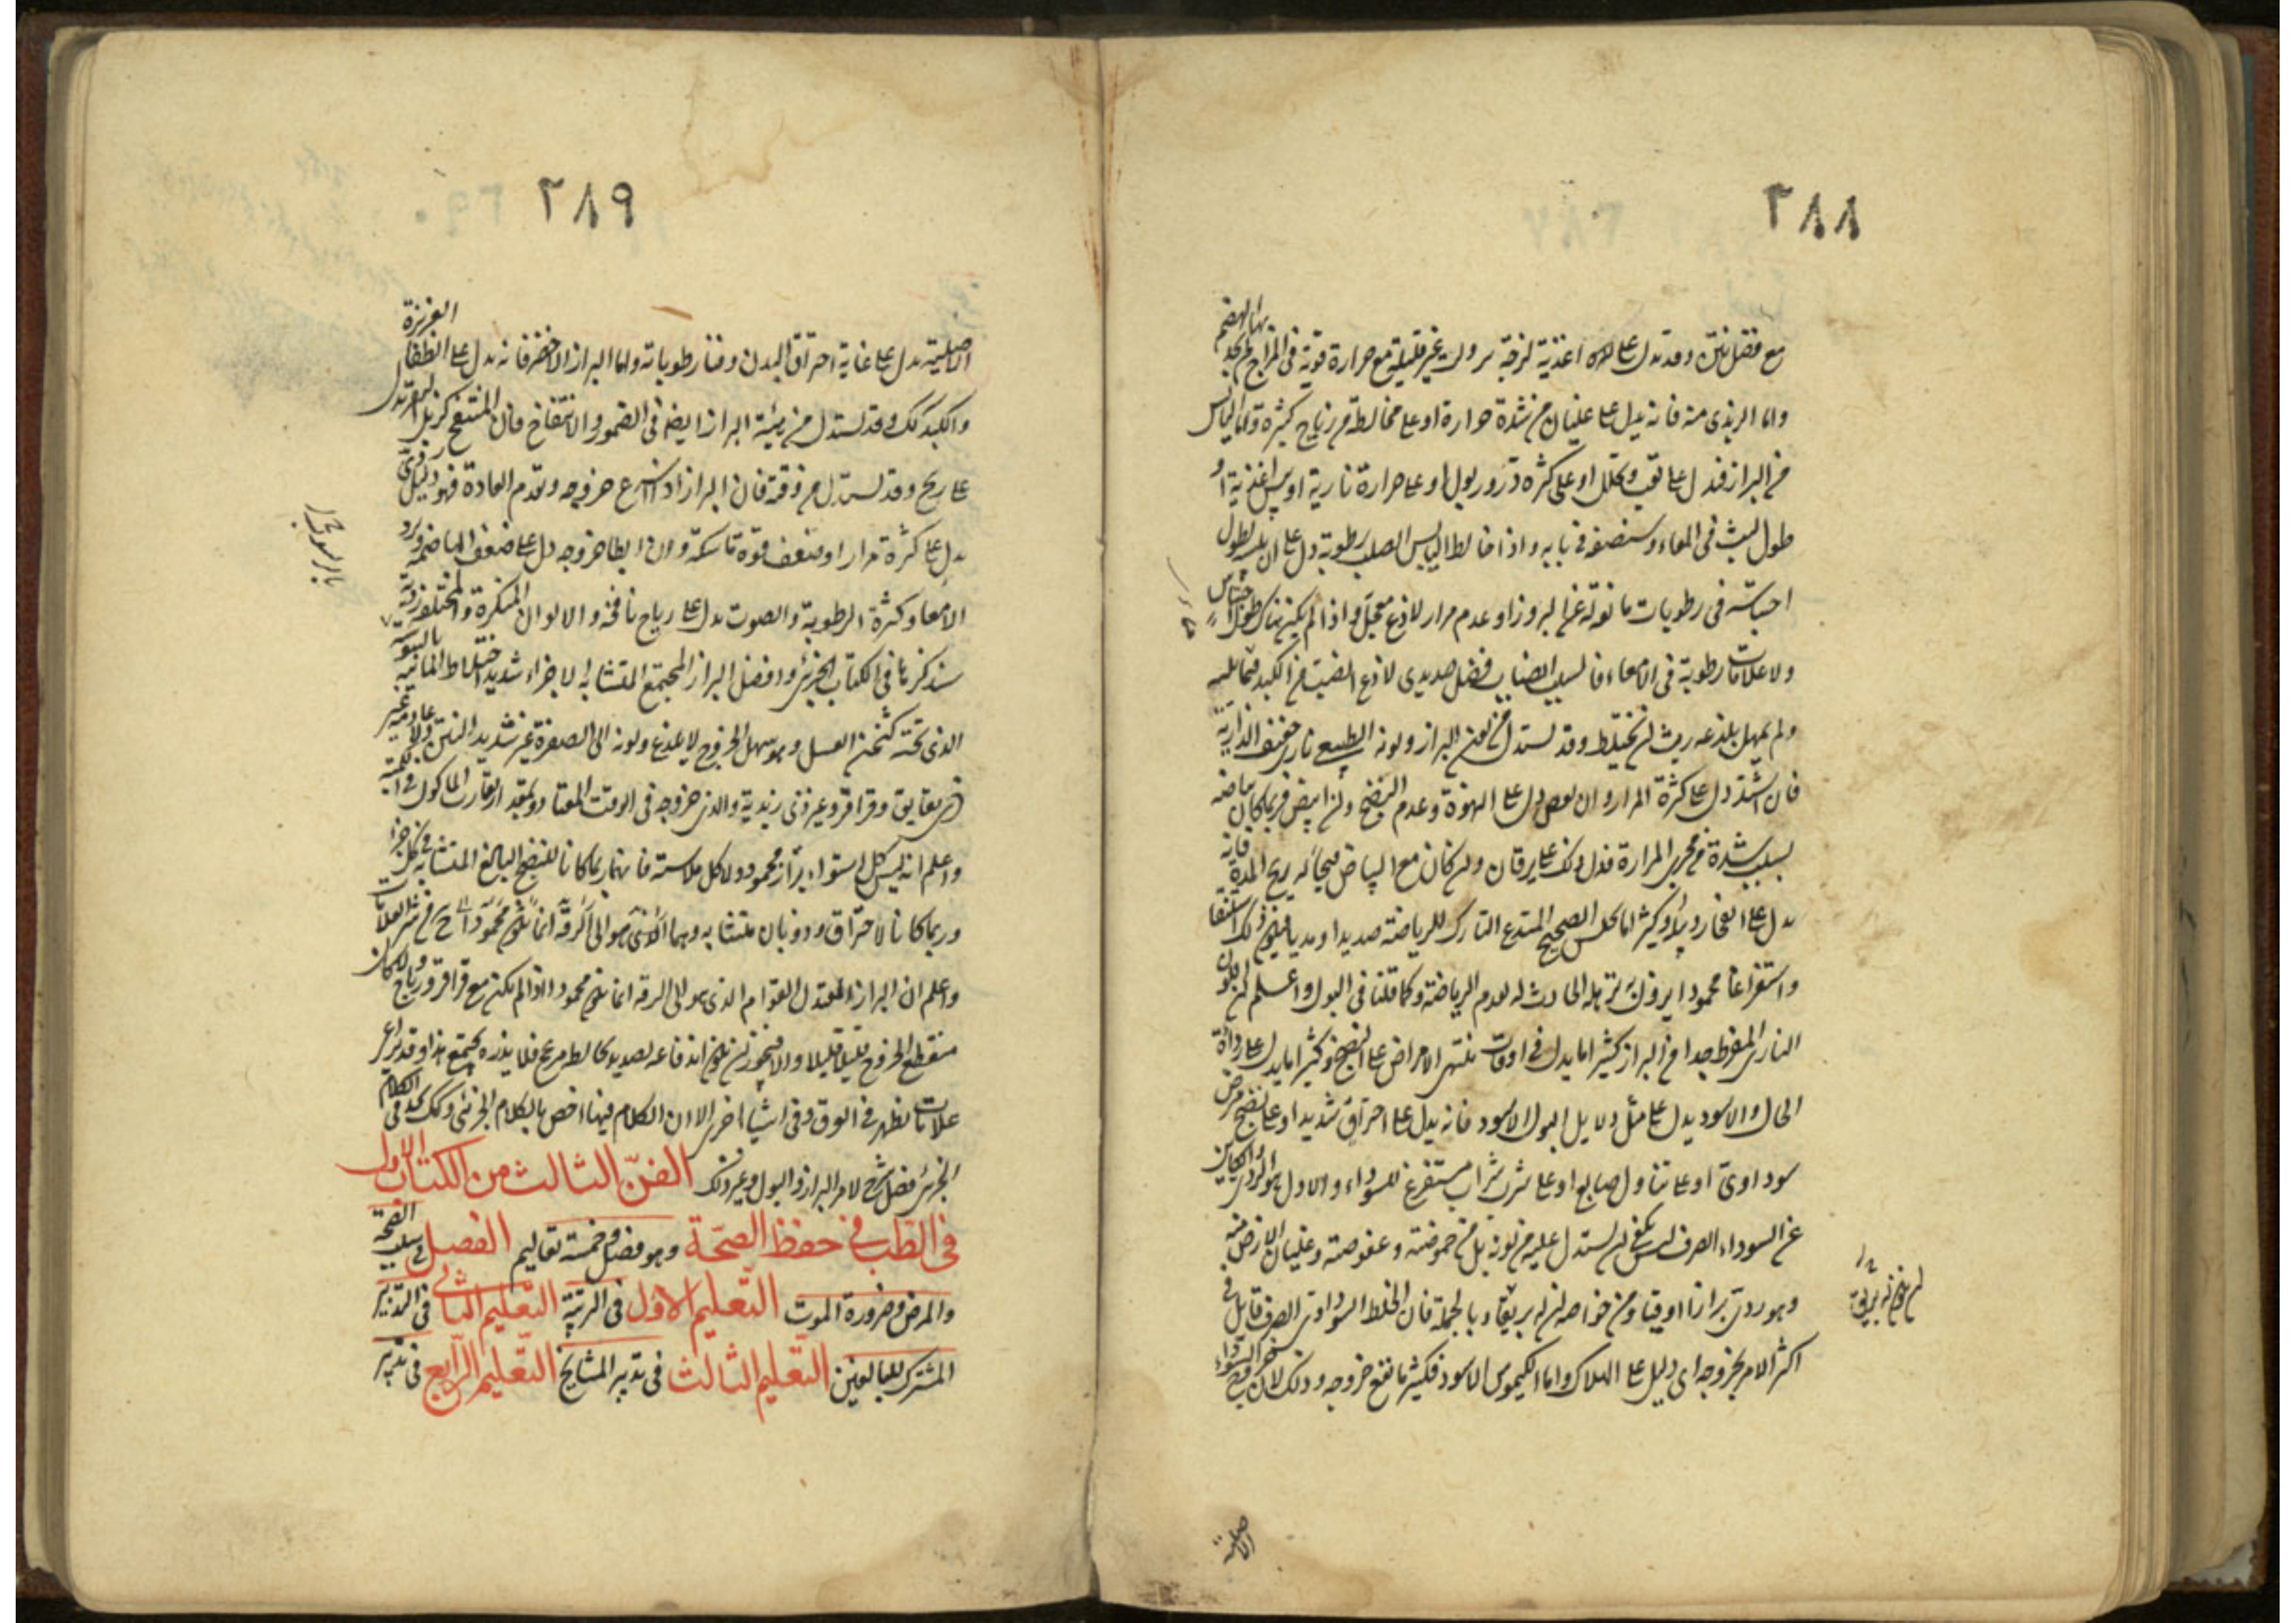 ٢٨٨
بها الهضم
مع فضل نتن وقد تدل على اغذية لزجة وردت غير قليلة مع حرارة قوية فى المزاج لم يجد
واما الزبدى منه فانه يدل على غليان من شدة حرارة او على مخالطة من رياح كثيرة واما اليابس
من البراز فيدل على تعب وتحلل او على كثرة درور بول او على حرارة نارية او يبس اغذية او
طول لبث فى المعاء وسنصفه فى بابه واذا خالط اليابس الصلب رطوبة دل على ان يبسه لطول
احتباسه فى رطوبات مانعة له عن البروز او عدم مرار لاذع معجل واذا لم يكن هناك طول احتباس
ولا علامات رطوبة فى الامعاء فالسبب انصباب فضل صديدى لاذع انصبت من الكبد مما يليه
ولم يمهل بلذعه ريث ان يختلط وقد يستدل من لون البراز ولونه الطبيعى نارى خفيف النارية
فان اشتد دل على كثرة المرار وان نقص دل على الفجاجة وعدم النضج وان ابيض فربما كان بياضه
بسبب سدة من مجرى المرارة فدل ذلك على يرقان وان كان مع البياض قيحيا له ريح المدة فانه
يدل على انفجار دبيلة وكثيرا ما يجلس الصحيح المتدع التارك للرياضة صديدا ومديا فيكون ذلك استنقاء
واستفراغا محمودا يزول به ترهله الحادث له لعدم الرياضة وكما قلنا فى البول واعلم ان اللون
النارى المفرط جدا من البراز كثيرا ما يدل فى اوقات منتهى الامراض على النضج وكثيرا ما يدل على رداءة
الحال والاسود يدل على مثل دلايل البول الاسود فانه يدل على احتراق شديد او على نضج مرض
سوداوى او على تناول صابغ او على شرب شراب مستفرغ للسوداء والاول هو الردى والكاين
عن السوداء الصرف ليس يكفى ان يستدل عليه من لونه بل من حموضته وعفوصته وغليان الارض منه
وهو ردى برازا او قيئا ومن خواصه ان له بريقا وبالجملة فان الخلط السوداوى الصرف قاتل فى
اكثر الامر بخروجه اى دليل على الهلاك واما الكيموس الاسود فكثيرا ما نفع خروجه وذلك لان خروج السوداء
الاصلية
٢٨٩
الغريزة
الاصلية يدل على غاية احتراق البدن وفناء رطوباته واما البراز الاخضر فانه يدل على انطفاء
والكمد كذلك وقد يستدل من هيئة البراز ايضا فى الضمور والانتفاخ فان المنتفخ كزبل البقر يدل
على ريح وقد يستدل من وقته فان البراز اذا اسرع خروجه وتقدم العادة فهو دليل ردى
يدل على كثرة مرار او ضعف قوة ماسكة وان ابطأ خروجه دل على ضعف الهاضمة وبرد
الامعاء وكثرة الرطوبة والصوت يدل على رياح نافخة والالوان المنكرة والمختلفة ردية
سنذكرها فى الكتاب الجزئى وافضل البراز المجتمع المتشابه الاجزاء شديد اختلاط المائية باليبوسة
الذى ثخنه كثخن العسل وهو سهل الخروج لا يلذع ولونه الى الصفرة غير شديد النتن ولا عادمه غير
ذى بقابق وقراقر وغير ذى زبدية والذى خروجه فى الوقت المعتاد وبمقدار يقارب الماكول فى الكمية
واعلم انه ليس كل استواء براز محمود ولا كل ملاسة فانهما ربما كانا للنضج البالغ المتشابه فى كل جزء
وربما كانا لاحتراق وذوبان متشابه وهما حينئذ من شر العلامات
واعلم ان البراز المعتدل القوام الذى هو الى الرقة انما يكون محمودا اذا لم يكن مع قراقر ورياح ولا كان
منقطع الخروج قليلا قليلا والا فيجوز ان يكون اندفاعه لصديد مخالط مزعج فلا يذره يجتمع هذا وقد يراعى
علامات تظهر فى العرق وفى اشياء اخرى الا ان الكلام فيها اخص بالكلام الجزئى وكذلك نجد فى الكلام
الجزئى فضل شرح لامر البراز والبول وغير ذلك الفنّ الثالث من الكتاب الاول
فى الطب فى حفظ الصحة وهو فصل وخمسة تعاليم الفصل فى سبب الصحة
والمرض وضرورة الموت التعليم الاول فى التربية التعليم الثانى فى التدبير
المشترك للبالغين التعليم الثالث فى تدبير المشايخ التعليم الرابع فى تدبير